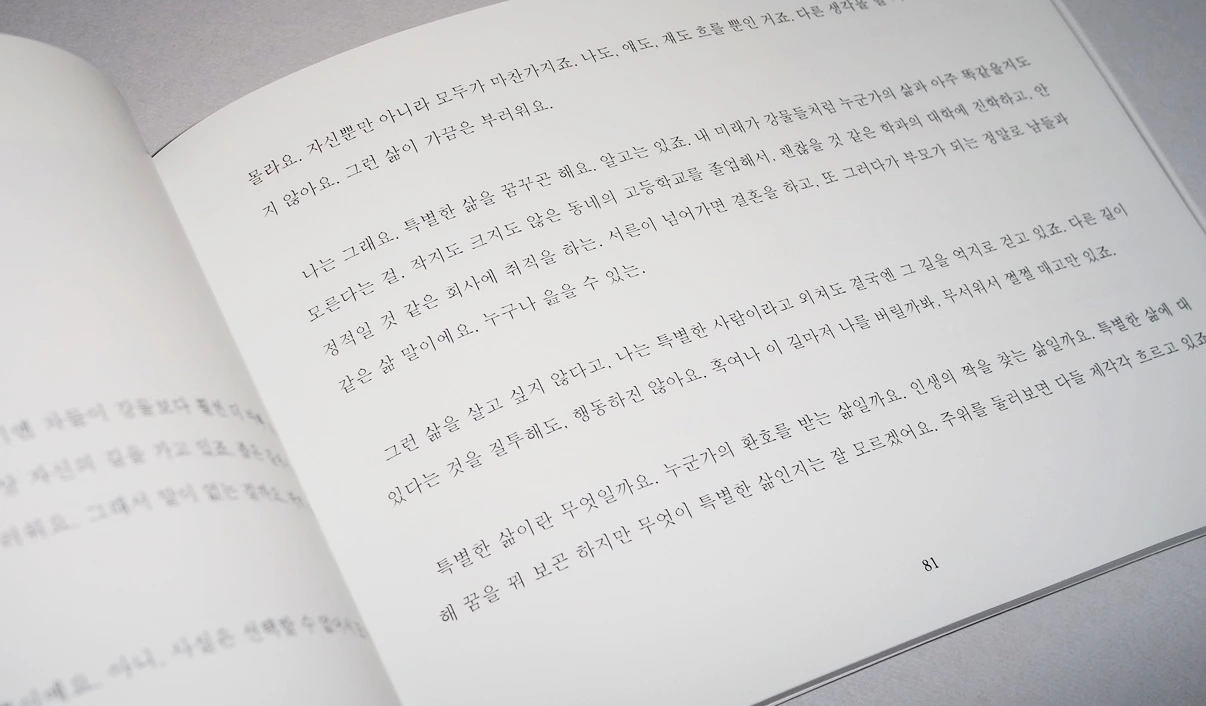 자들이 강물보다 훨씬 더
자신의 길을 가고 있죠.
러워요. 그래서 말이 없는
아니, 사실은 선택할 수 없어서
몰라요. 자신뿐만 아니라 모두가 마찬가지죠. 나도, 얘도, 쟤도 흐를 뿐인 거죠. 다른 생각을
지 않아요. 그런 삶이 가끔은 부러워요.
나는 그래요. 특별한 삶을 꿈꾸곤 해요. 알고는 있죠. 내 미래가 강물들처럼 누군가의 삶과 아주 똑같을지도
모른다는 걸. 작지도 크지도 않은 동네의 고등학교를 졸업해서, 괜찮을 것 같은 학과의 대학에 진학하고, 안
정적일 것 같은 회사에 취직을 하는. 서른이 넘어가면 결혼을 하고, 또 그러다가 부모가 되는 정말로 남들과
같은 삶 말이에요. 누구나 읊을 수 있는.
그런 삶을 살고 싶지 않다고, 나는 특별한 사람이라고 외쳐도 결국엔 그 길을 억지로 걷고 있죠. 다른 길이
있다는 것을 질투해도, 행동하진 않아요. 혹여나 이 길마저 나를 버릴까봐, 무서워서 쩔쩔 매고만 있죠.
특별한 삶이란 무엇일까요. 누군가의 환호를 받는 삶일까요. 인생의 짝을 찾는 삶일까요. 특별한 삶에 대
해 꿈을 꿔 보곤 하지만 무엇이 특별한 삶인지는 잘 모르겠어요. 주위를 둘러보면 다들 제각각 흐르고 있죠
81